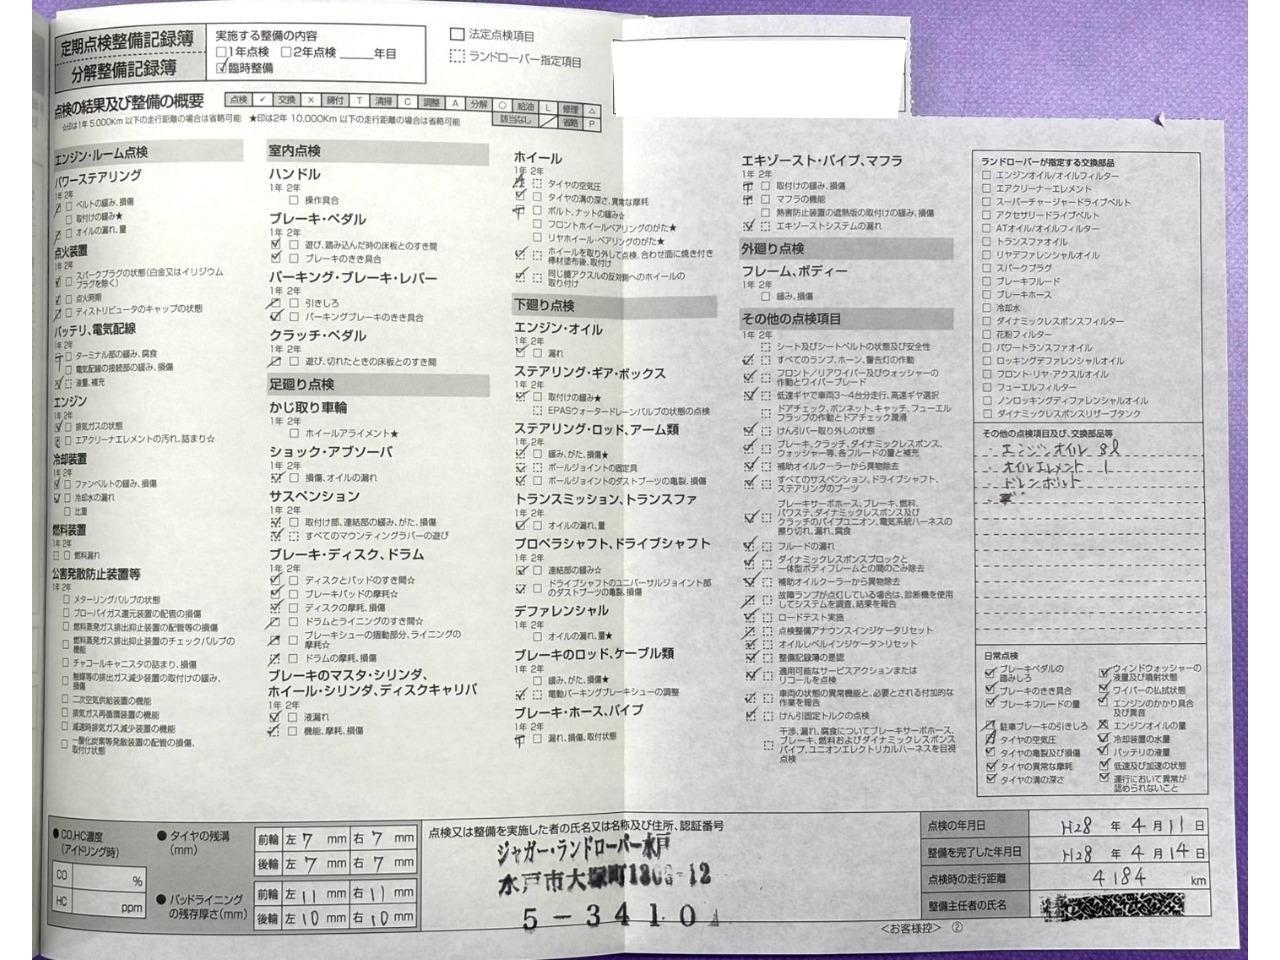 定期点検整備記録簿
分解整備記録簿
実施する整備の内容
□1年点検 □2年点検 ____年目
☑臨時整備
法定点検項目
ランドローバー指定項目
点検の結果及び整備の概要
点検 ✓ 交換 × 締付 T 清掃 C 調整 A 分解 ○ 給油 L 修理 △
該当なし ／ 省略 P
☆印は1年 5,000Km 以下の走行距離の場合は省略可能 ★印は2年 10,000Km 以下の走行距離の場合は省略可能
エンジン・ルーム点検
パワーステアリング
1年 2年
ベルトの緩み、損傷
取付けの緩み★
オイルの漏れ、量
点火装置
1年 2年
スパークプラグの状態(白金又はイリジウムプラグを除く)
点火時期
ディストリビュータのキャップの状態
バッテリ、電気配線
1年 2年
ターミナル部の緩み、腐食
電気配線の接続部の緩み、損傷
液量、補充
エンジン
1年 2年
排気ガスの状態
エアクリーナエレメントの汚れ、詰まり☆
冷却装置
1年 2年
ファンベルトの緩み、損傷
冷却水の漏れ
比重
燃料装置
1年 2年
燃料漏れ
公害発散防止装置等
1年 2年
メターリングバルブの状態
ブローバイガス還元装置の配管の損傷
燃料蒸発ガス排出抑止装置の配管等の損傷
燃料蒸発ガス排出抑止装置のチェックバルブの機能
チャコールキャニスタの詰まり、損傷
触媒等の排出ガス減少装置の取付けの緩み、損傷
二次空気供給装置の機能
排気ガス再循環装置の機能
減速時排気ガス減少装置の機能
一酸化炭素等発散装置の配管の損傷、取付け状態
室内点検
ハンドル
1年 2年
操作具合
ブレーキ・ペダル
1年 2年
遊び、踏み込んだ時の床板とのすき間
ブレーキのきき具合
パーキング・ブレーキ・レバー
1年 2年
引きしろ
パーキングブレーキのきき具合
クラッチ・ペダル
1年 2年
遊び、切れたときの床板とのすき間
足廻り点検
かじ取り車輪
1年 2年
ホイールアライメント★
ショック・アブソーバ
1年 2年
損傷、オイルの漏れ
サスペンション
1年 2年
取付け部、連結部の緩み、がた、損傷
すべてのマウンティングラバーの遊び
ブレーキ・ディスク、ドラム
1年 2年
ディスクとパッドのすき間☆
ブレーキパッドの摩耗☆
ディスクの摩耗、損傷
ドラムとライニングのすき間☆
ブレーキシューの摺動部分、ライニングの摩耗☆
ドラムの摩耗、損傷
ブレーキのマスタ・シリンダ、
ホイール・シリンダ、ディスクキャリパ
1年 2年
液漏れ
機能、摩耗、損傷
ホイール
1年 2年
タイヤの空気圧
タイヤの溝の深さ、異常な摩耗
ボルト、ナットの緩み☆
フロントホイールベアリングのがた★
リヤホイール・ベアリングのがた★
ホイールを取り外して点検、合わせ面に焼き付き棒材塗布後、取付け
同じ軸アクスルの反対側へのホイールの取り付け
下廻り点検
エンジン・オイル
1年 2年
漏れ
ステアリング・ギア・ボックス
1年 2年
取付けの緩み★
EPASウォータードレーンバルブの状態の点検
ステアリング・ロッド、アーム類
1年 2年
緩み、がた、損傷★
ボールジョイントの固定具
ボールジョイントのダストブーツの亀裂、損傷
トランスミッション、トランスファ
1年 2年
オイルの漏れ、量
プロペラシャフト、ドライブシャフト
1年 2年
連結部の緩み☆
ドライブシャフトのユニバーサルジョイント部のダストブーツの亀裂、損傷
デファレンシャル
1年 2年
オイルの漏れ、量★
ブレーキのロッド、ケーブル類
1年 2年
緩み、がた、損傷★
電動パーキングブレーキシューの調整
ブレーキ・ホース、パイプ
1年 2年
漏れ、損傷、取付状態
エキゾースト・パイプ、マフラ
1年 2年
取付けの緩み、損傷
マフラの機能
熱害防止装置の遮熱版の取付けの緩み、損傷
エキゾーストシステムの漏れ
外廻り点検
フレーム、ボディー
1年 2年
緩み、損傷
その他の点検項目
1年 2年
シート及びシートベルトの状態及び安全性
すべてのランプ、ホーン、警告灯の作動
フロント/リアワイパー及びウォッシャーの作動とワイパーブレード
低速ギヤで車両3～4台分走行、高速ギヤ選択
ドアチェック、ボンネット、キャッチ、フューエルフラップの作動とドアチェック潤滑
けん引バー取り外しの状態
ブレーキ、クラッチ、ダイナミックレスポンス、ウォッシャー等、各フルードの量と補充
補助オイルクーラーから異物除去
すべてのサスペンション、ドライブシャフト、ステアリングのブーツ
ブレーキサーボホース、ブレーキ、燃料、パワステ、ダイナミックレスポンス及びクラッチのパイプユニオン、電気系統ハーネスの擦り切れ、漏れ、腐食
フルードの漏れ
ダイナミックレスポンスブロックと一体型ボディフレームとの間のごみ除去
補助オイルクーラーから異物除去
故障ランプが点灯している場合は、診断機を使用してシステムを調査、結果を報告
ロードテスト実施
点検整備アナウンスインジケータリセット
オイルレベルインジケータ>リセット
整備記録簿の是認
適用可能なサービスアクションまたはリコールを点検
車両の状態の異常機能と、必要とされる付加的な作業を報告
けん引固定トルクの点検
干渉、漏れ、腐食についてブレーキサーボホース、ブレーキ、燃料およびダイナミックレスポンスパイプ、ユニオンエレクトリカルハーネスを目視点検
ランドローバーが指定する交換部品
エンジンオイル/オイルフィルター
エアクリーナーエレメント
スーパーチャージャードライブベルト
アクセサリードライブベルト
ATオイル/オイルフィルター
トランスファオイル
リヤデファレンシャルオイル
スパークプラグ
ブレーキフルード
ブレーキホース
冷却水
ダイナミックレスポンスフィルター
花粉フィルター
パワートランスファオイル
ロッキングデファレンシャルオイル
フロント・リヤ・アクスルオイル
フューエルフィルター
ノンロッキングディファレンシャルオイル
ダイナミックレスポンスリザーブタンク
その他の点検項目及び、交換部品等
・エンジンオイル 8ℓ
・オイルエレメント 1
・ドレンボルト
日常点検
ブレーキペダルの踏みしろ
ブレーキのきき具合
ブレーキフルードの量
駐車ブレーキの引きしろ
タイヤの空気圧
タイヤの亀裂及び損傷
タイヤの異常な摩耗
タイヤの溝の深さ
ウィンドウォッシャーの液量及び噴射状態
ワイパーの払拭状態
エンジンのかかり具合及び異音
エンジンオイルの量
冷却装置の水量
バッテリの液量
低速及び加速の状態
運行において異常が認められないこと
●CO,HC濃度
(アイドリング時)
CO %
HC ppm
●タイヤの残溝
(mm)
前輪 左 7 mm 右 7 mm
後輪 左 7 mm 右 7 mm
●パッドライニングの残存厚さ(mm)
前輪 左 11 mm 右 11 mm
後輪 左 10 mm 右 10 mm
点検又は整備を実施した者の氏名又は名称及び住所、認証番号
ジャガー・ランドローバー水戸
水戸市大塚町1866-12
5-3410
点検の年月日 H28 年 4 月 11 日
整備を完了した年月日 H28 年 4 月 14 日
点検時の走行距離 4184 km
整備主任者の氏名
<お客様控> ②